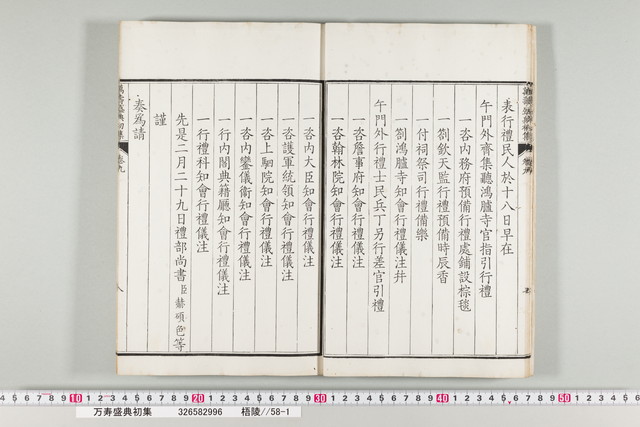 表行禮民人於十八日早在
午門外齊集聽鴻臚寺官指引行禮
一咨內務府預備行禮處鋪設棕毯
一劄欽天監行禮預備時辰香
一付祠祭司行禮備樂
一劄鴻臚寺知會行禮儀注并
午門外行禮士民兵丁另行差官引禮
一咨詹事府知會行禮儀注
一咨翰林院知會行禮儀注
一咨內大臣知會行禮儀注
一咨護軍統領知會行禮儀注
一咨上駟院知會行禮儀注
一咨內鑾儀衛知會行禮儀注
一行內閣典籍廳知會行禮儀注
一行禮科知會行禮儀注
先是二月二十九日禮部尚書臣赫碩色等
謹
奏爲請
萬壽盛典初集
卷九
八
万寿盛典初集 326582996 梧陵//58-1
10 20 30 40 50